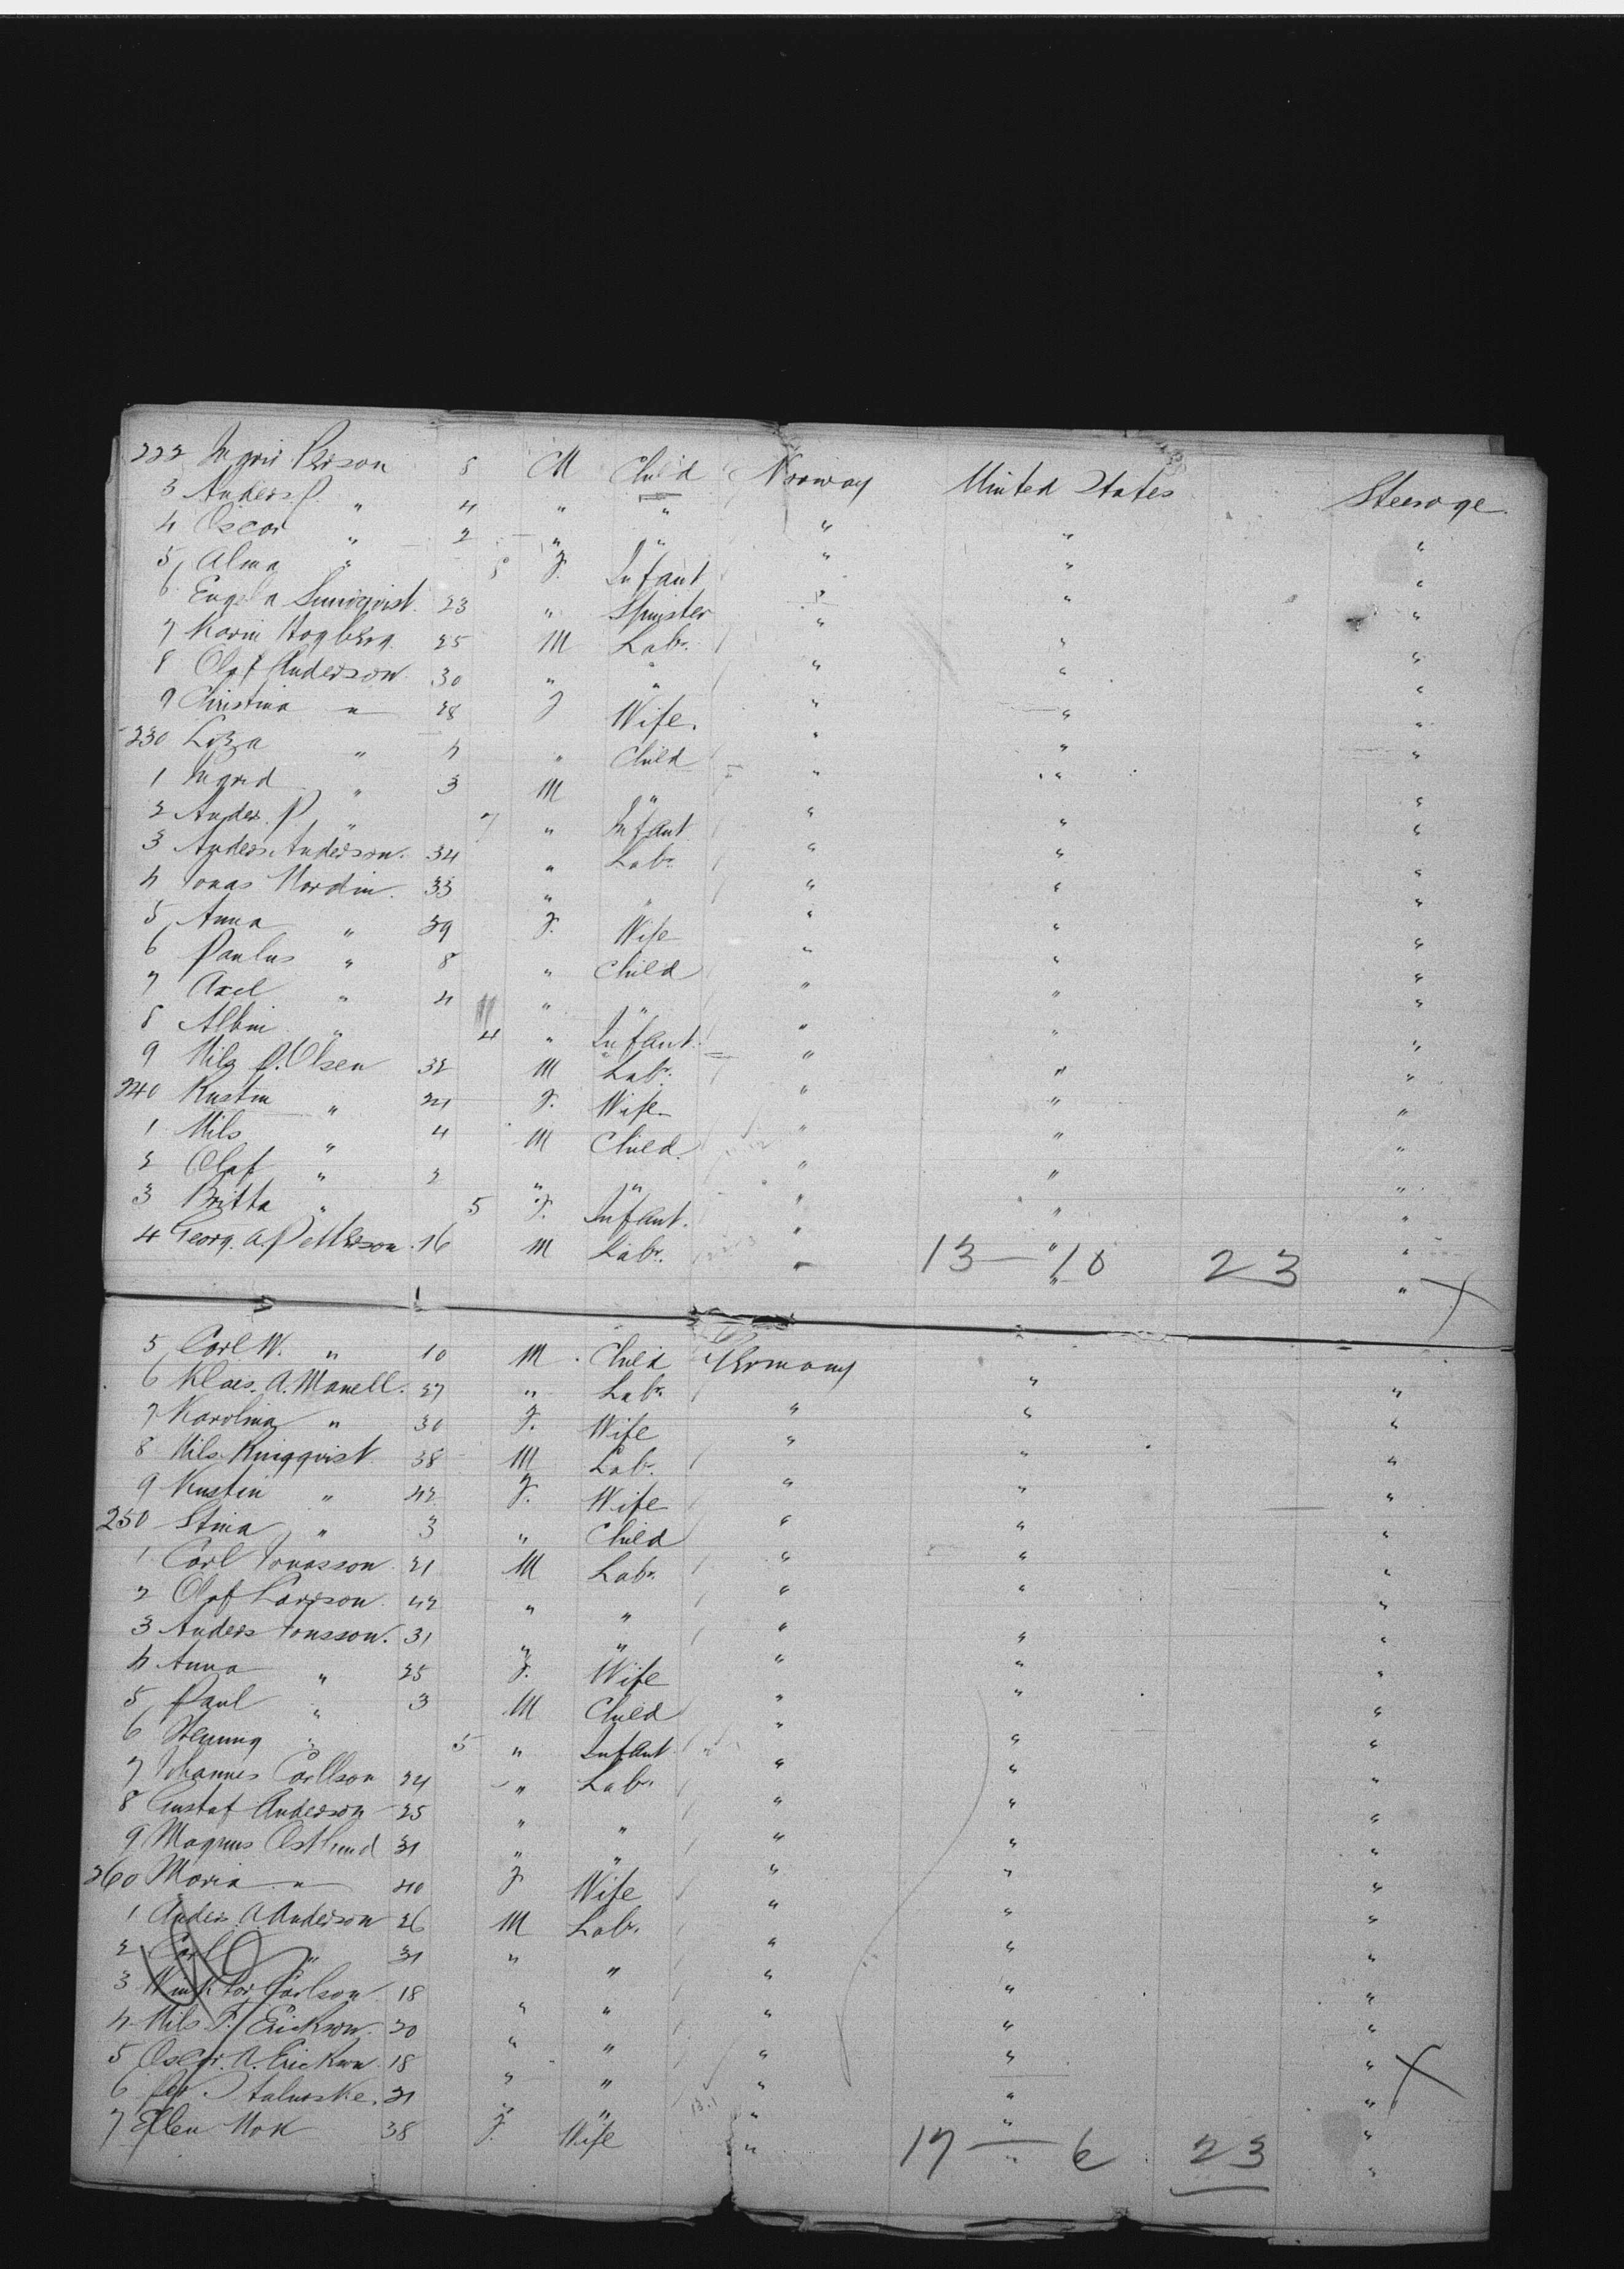 222 Ingrid Person 8 M Child Norway United States Steerage.
3 Anders P. " 4 " " " " "
4 Oscar " 2 " " " " "
5 Alma " F. Infant " " "
6 Engela Sundqvist. 23 " Spinster " " "
7 Karin Hogberg. 25 M Labr. " " "
8 Olof Anderson. 30 " " " " "
9 Christina " 28 F Wife. " " "
230 Liza " 4 " Child " " "
1 Ingrid " 3 M " " " "
2 Ander. P. " 7 " Infant " " "
3 Anders Anderson. 34 " Labr. " " "
4 Jonas Nordin. 33 " " " " "
5 Anna " 39 F. Wife " " "
6 Paulus " 8 " Child " " "
7 Axel " 4 " " " " "
8 Albin " 4 " Infant. " " "
9 Nils P. Olsen 32 M Labr. " " "
240 Kustin " 24 F. Wife. " " "
1 Nils " 4 M Child. " " "
2 Olof " 2 " " " " "
3 Britta " 5 F. Infant. " " "
4 Georg. A. Petterson. 16 M Labr. " " "
13 — 10 23 X
5 Carl W. " 10 M. Child Germany " "
6 Klaes. A. Manell. 27 " Labr. " " "
7 Karolina " 30 F. Wife " " "
8 Nils Ringqvist. 38 M Labr. " " "
9 Kustin " 42 F. Wife " " "
250 Stina " 3 " Child " " "
1 Carl Jonasson. 21 M Labr. " " "
2 Olof Larsson. 42 " " " " "
3 Anders Jonsson. 31 " " " " "
4 Anna " 25 F. Wife " " "
5 Paul " 3 M Child " " "
6 Henning " 5 " Infant " " "
7 Johannes Carllson 24 " Labr. " " "
8 Gustaf Anderson 25 " " " " "
9 Magnus Ostlund 31 " " " " "
260 Maria " 40 F Wife " " "
1 Anders. A. Anderson 26 M Labr. " " "
2 Carl " 21 " " " " "
3 Carlson. 18 " " " " "
4 Nils F. Erickson. 20 " " " " "
5 Oscar. A. Erickson. 18 " " " " "
6 21 " " " " " X
7 Ellen Nok 38 F. Wife " " "
17 — 6 23